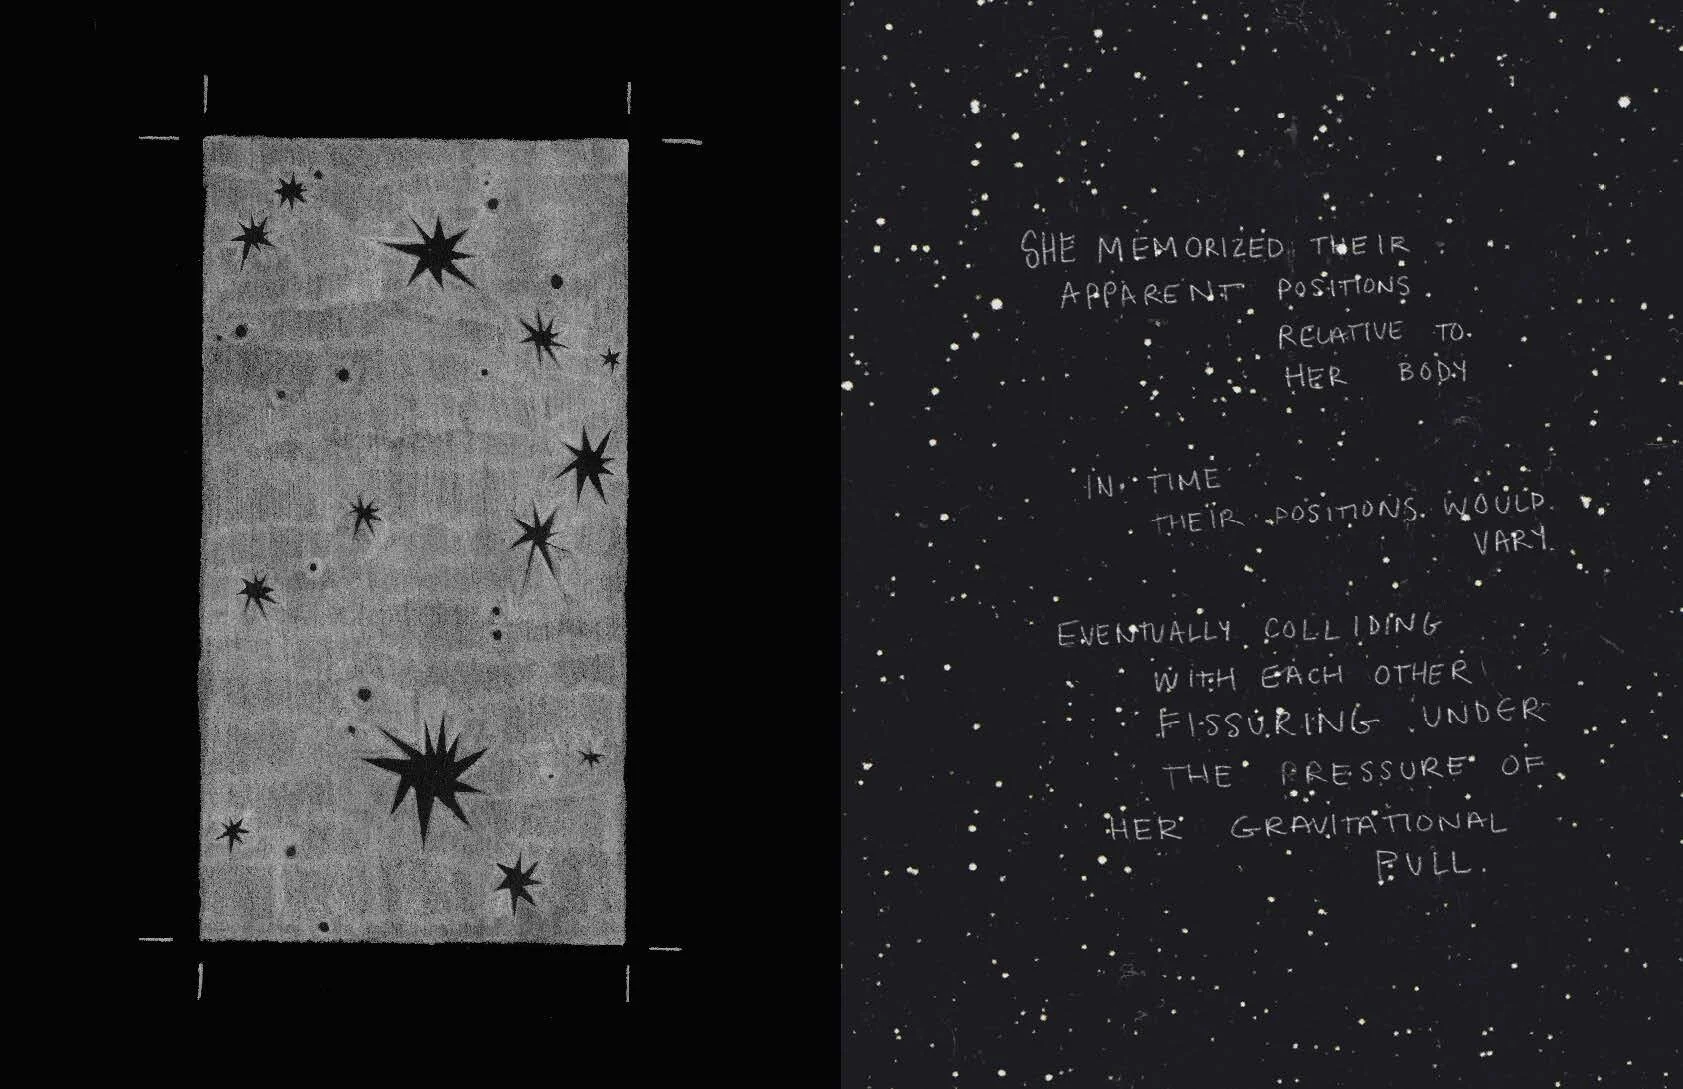 SHE MEMORIZED THEIR
APPARENT POSITIONS
RELATIVE TO
HER BODY
IN TIME
THEIR POSITIONS WOULD
VARY.
EVENTUALLY COLLIDING
WITH EACH OTHER
FISSURING UNDER
THE PRESSURE OF
HER GRAVITATIONAL
PULL.